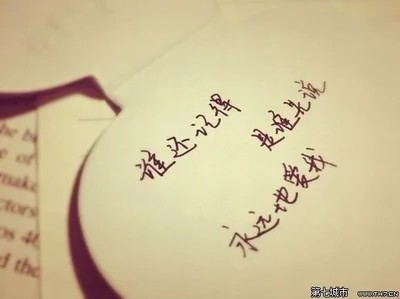 谁还记得
是谁先说
永远地爱我
he b
e of
make
ctors
os 46
d the
第七城市
WWW.TH7.CN